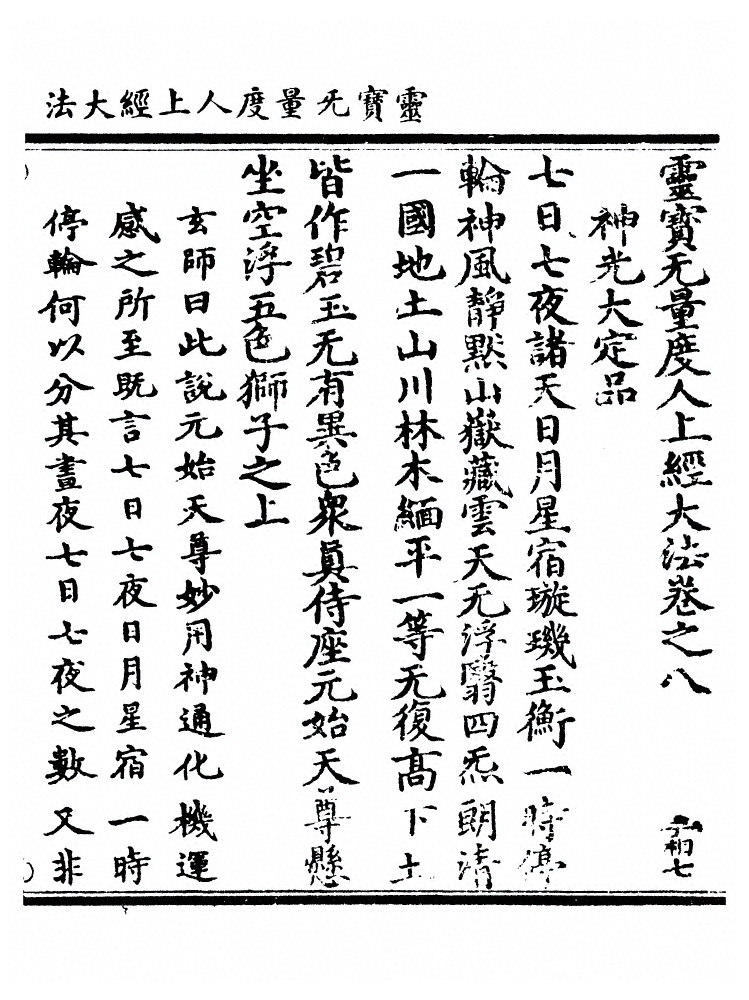 靈寶无量度人上經大法
靈寶无量度人上經大法卷之八
神光大定品
七日七夜諸天日月星宿璇璣玉衡一時停
輪神風靜默山嶽藏雲天无浮翳四炁朗清
一國地土山川林木緬平一等无復高下土
皆作碧玉无有異色衆眞侍座元始天尊懸
坐空浮五色獅子之上
玄師曰此說元始天尊妙用神通化機運
感之所至既言七日七夜日月星宿一時
停輪何以分其晝夜七日七夜之數又非